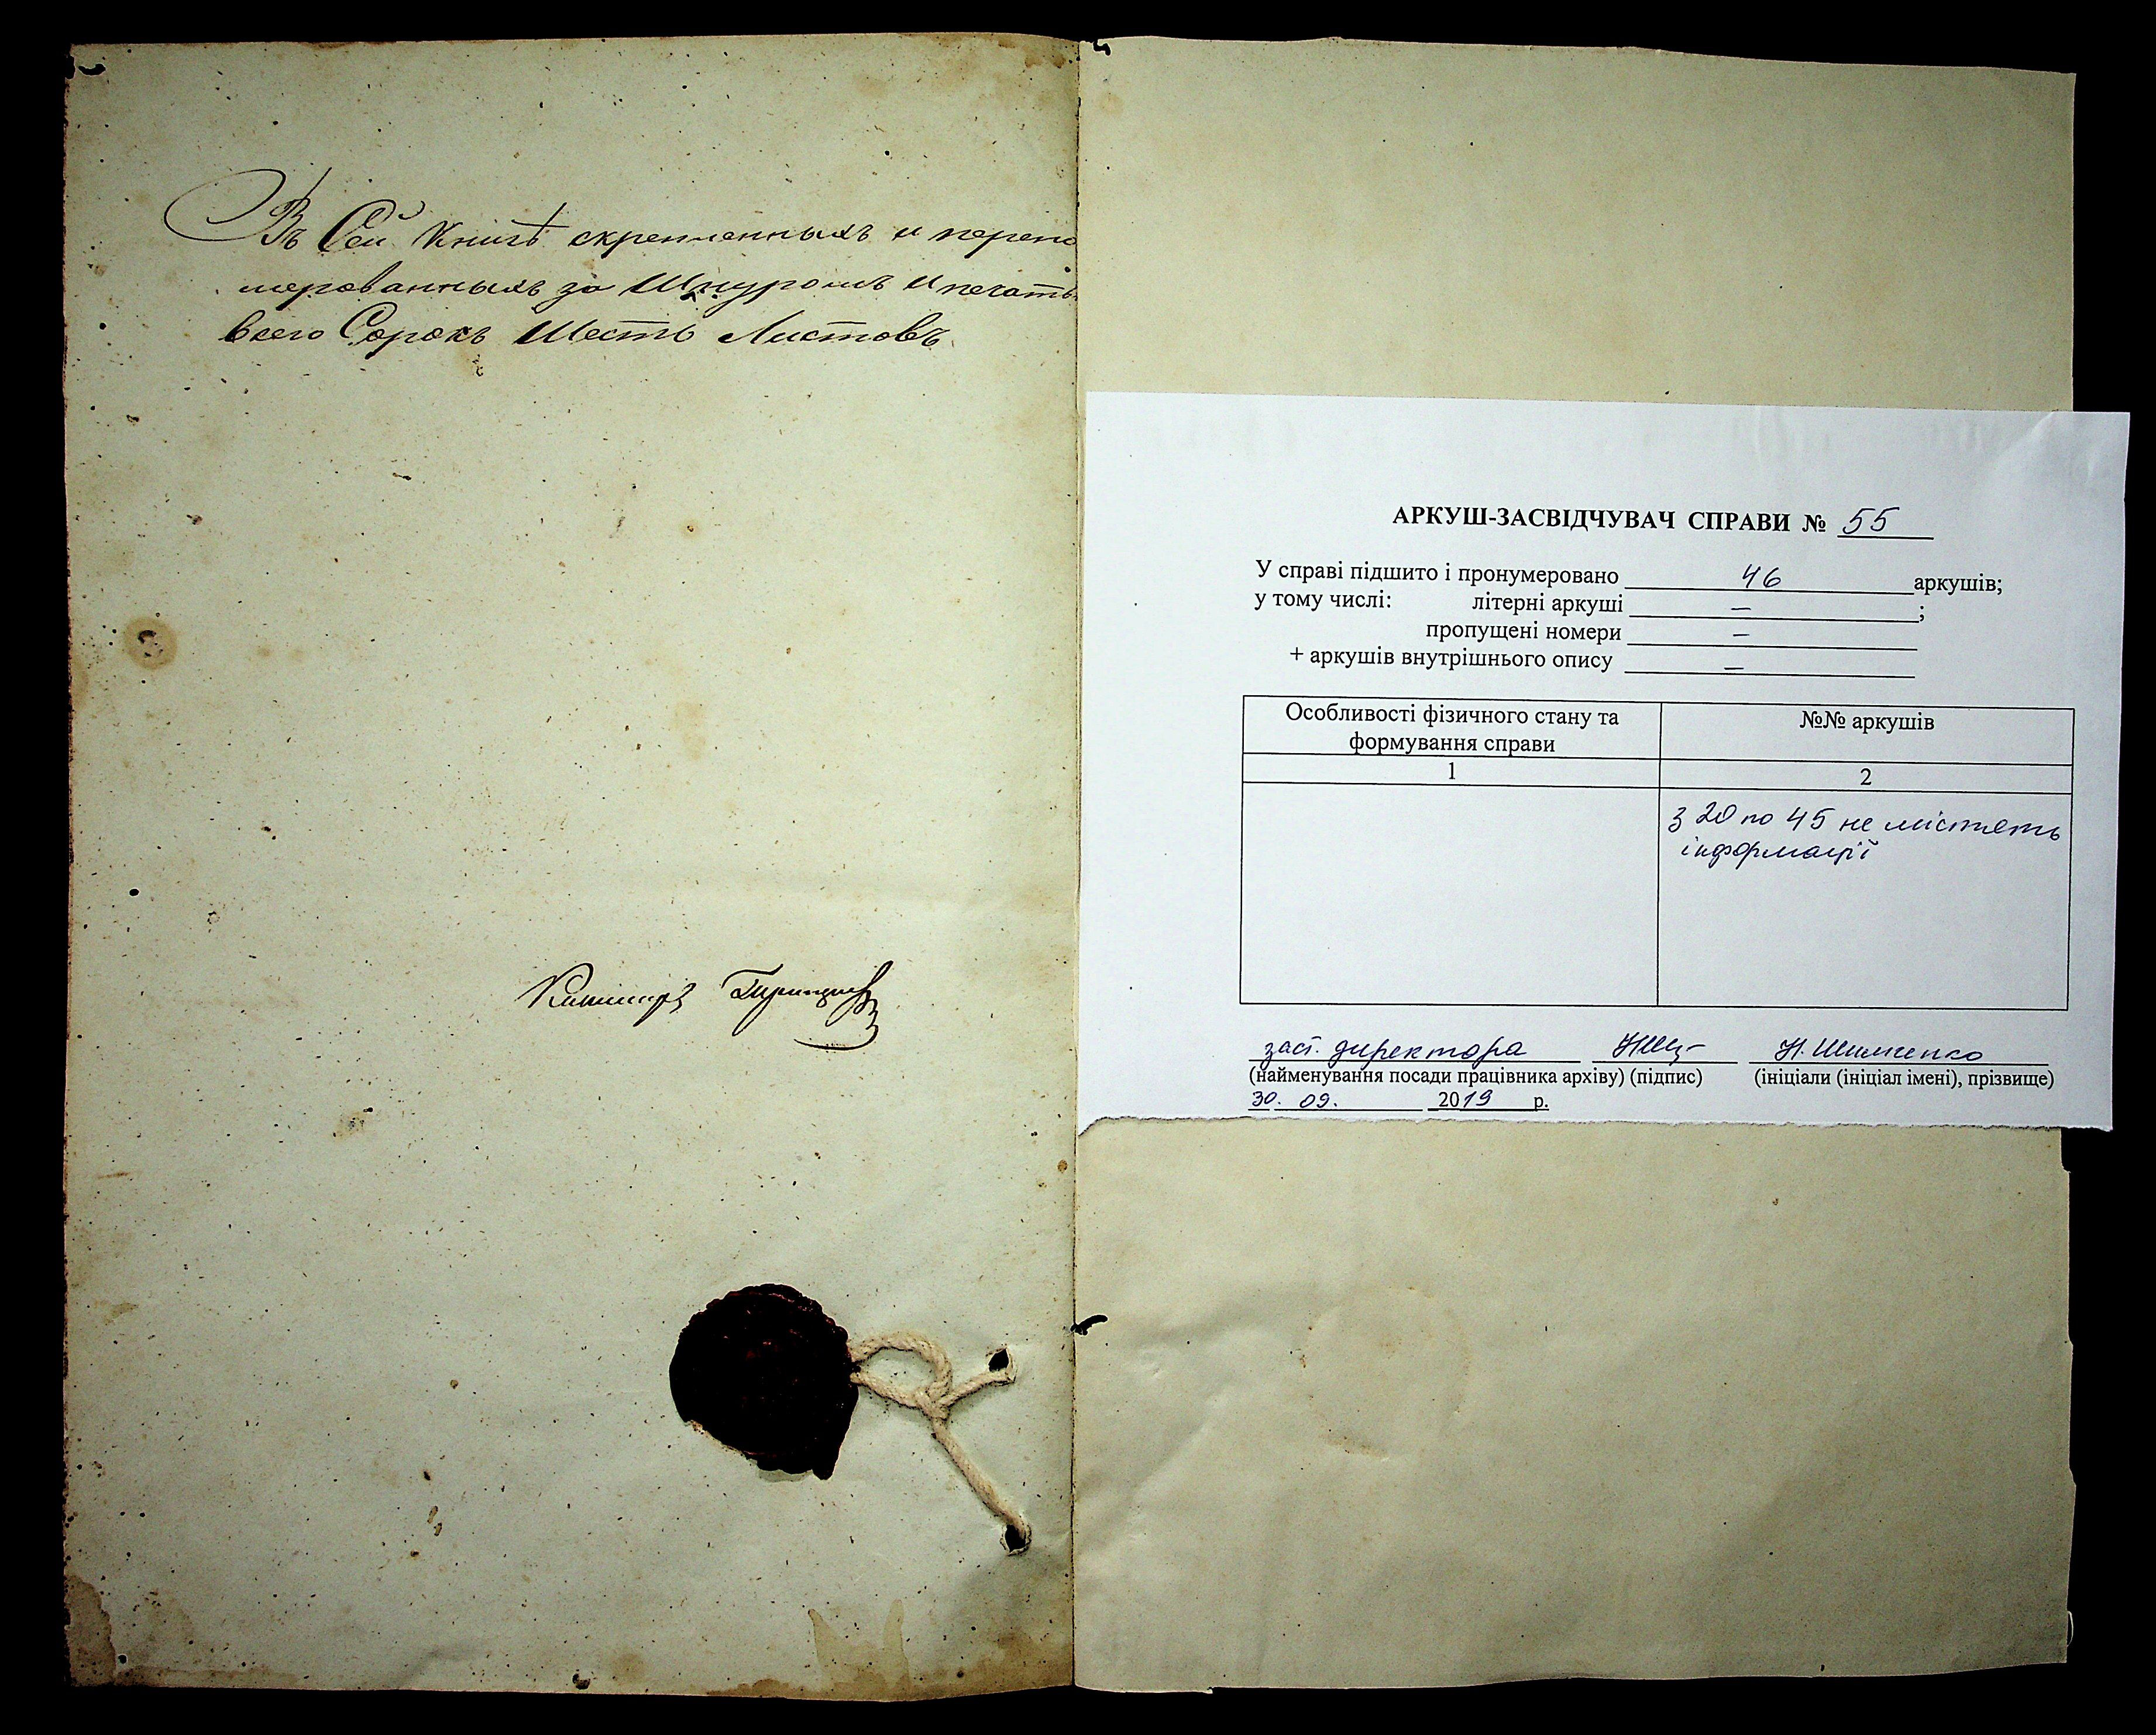 Въ Сей Книгѣ скрепленныхъ и перено
мерованныхъ за Шнуромъ и печать
всего Сорокъ Шесть Листовъ
АРКУШ-ЗАСВІДЧУВАЧ СПРАВИ № 55
У справі підшито і пронумеровано 46 аркушів;
у тому числі: літерні аркуші – ;
пропущені номери –
+ аркушів внутрішнього опису –
Особливості фізичного стану та
формування справи
№№ аркушів
1
2
з 20 по 45 не містять
інформації
заст. директора Н. Шимченко
(найменування посади працівника архіву) (підпис) (ініціали (ініціал імені), прізвище)
30. 09. 2019 р.